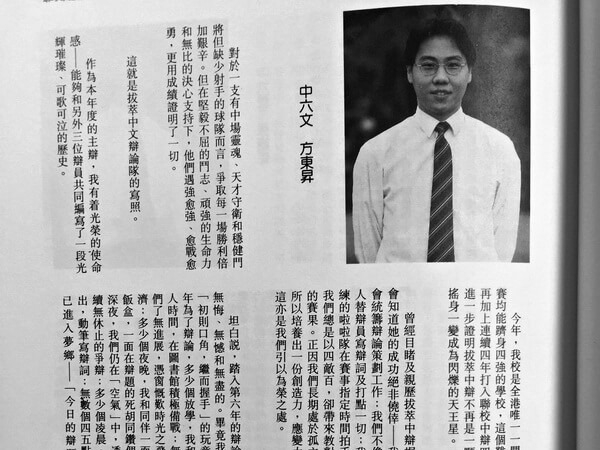 中六文 方東昇
對於一支有中場靈魂、天才守衛和穩健門
將但缺少射手的球隊而言，爭取每一場勝利倍
加艱辛。但在堅毅不屈的鬥志、頑強的生命力
和無比的決心支持下，他們遇強愈強、愈戰愈
勇，更用成績證明了一切。
這就是拔萃中文辯論隊的寫照。
作為本年度的主辯，我有着光榮的使命
感——能夠和另外三位辯員共同編寫了一段光
輝璀璨、可歌可泣的歷史。
今年，我校是全港唯一一
賽均能躋身四強的學校，這個
再加上連續四年打入聯校中辯四
進一步證明拔萃中辯不再是一
搖身一變成為閃爍的天王星。
曾經目睹及親歷拔萃中辯
會知道她的成功絕非僥倖——我
會統籌辯論策劃工作；我們不
人替辯員寫辯詞及打點一切；我
練的啦啦隊在賽事指定時間拍手
我們總是以四敵百，卻帶來教
的賽果。正因我們長期處於孤
所以培養出一份創造力，應變
這亦是我們引以為榮之處。
坦白說，踏入第六年的辯論
無悔、無憾和無盡的。畢竟我
「初則口角，繼而握手」的玩意
年為了辯論，多少個放學，我和
人時間，在圖書館積極備戰；無
們了無進展，憑窗慨歎時光之
濟；多少個夜晚，我和同伴一面
飯盒，一面在辯題的死胡同鑽
深夜，我們仍在「空氣」中，
續無休止的爭辯；多少個凌晨，
出，動筆寫辯詞；無數個四五點
已進入夢鄉——「今日的辯